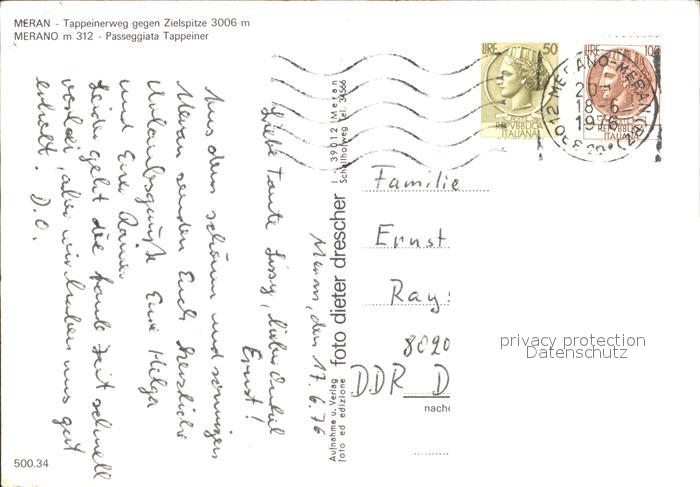 MERAN - Tappeinerweg gegen Zielspitze 3006 m
MERANO m 312 - Passeggiata Tappeiner
Meran, den 17.6.76
Liebe Tante Lissy, lieber Onkel
Ernst!
Aus dem schönen und sonnigen
Meran senden Euch herzliche
Urlaubsgrüße Eure Helga
und Euer Rainer
Leider geht die Zeit schnell
vorbei, aber wir haben uns gut
erholt. D.O.
500.34
Aufnahme u. Verlag
foto ed edizione
foto dieter drescher
I - 39012 Meran
Schallhofweg Tel. 34566
LIRE 50
REPUBBLICA
ITALIANA
LIRE 100
REPUBBLICA
ITALIANA
39012 MERANO-MERAN (BZ)
18-6
1976
Familie
Ernst
Ray
8020
DDR D
nache
privacy protection
Datenschutz